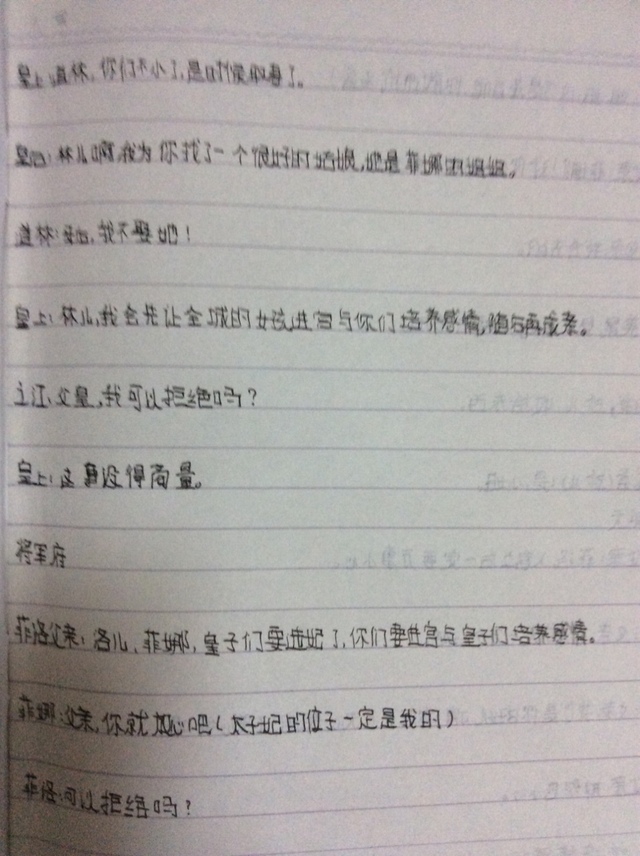 皇上:道林,你们不小了,是时候取妻了。
皇后:林儿啊,我为你找了一个很好的姑娘,她是菲娜的姐姐。
道林:母后,我不娶她!
皇上:林儿,我会先让全城的女孩进宫与你们培养感情,随后再成亲。
立江:父皇,我可以拒绝吗?
皇上:这事没得商量。
将军府
菲洛父亲:洛儿、菲娜,皇子们要选妃了,你们要进宫与皇子们培养感情。
菲娜:父亲,你就放心吧(太子妃的位子一定是我的)
菲洛:可以拒绝吗?